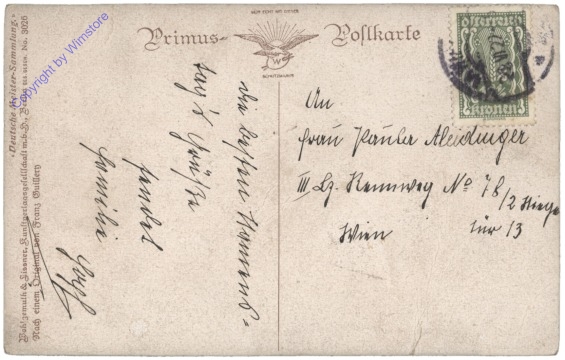 Primus-Postkarte
SCHUTZMARKE
Österreich
Kronen
An
Frau Paula Aleidinger
III Bz. Rennweg No 78/2 Stiege
Wien Tür 13
die besten Namens-
tag's Grüße
sendet
Familie
"Deutsche Meister-Sammlung." No. 3026
Wohlgemuth & Lissner, Kunstverlagsgesellschaft m.b.H., Berlin
Nach einem Original von Franz Guillery
Copyright by Wimstore